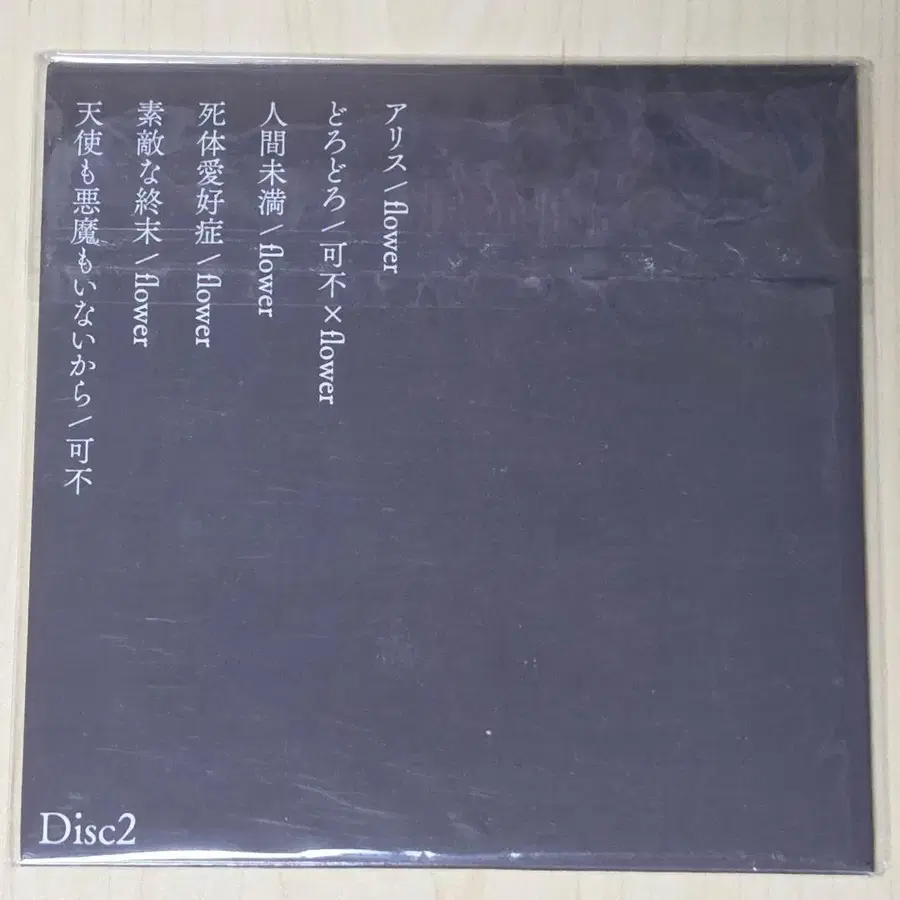 アリス/flower
どろどろ/可不×flower
人間未満/flower
死体愛好症/flower
素敵な終末/flower
天使も悪魔もいないから/可不
Disc2